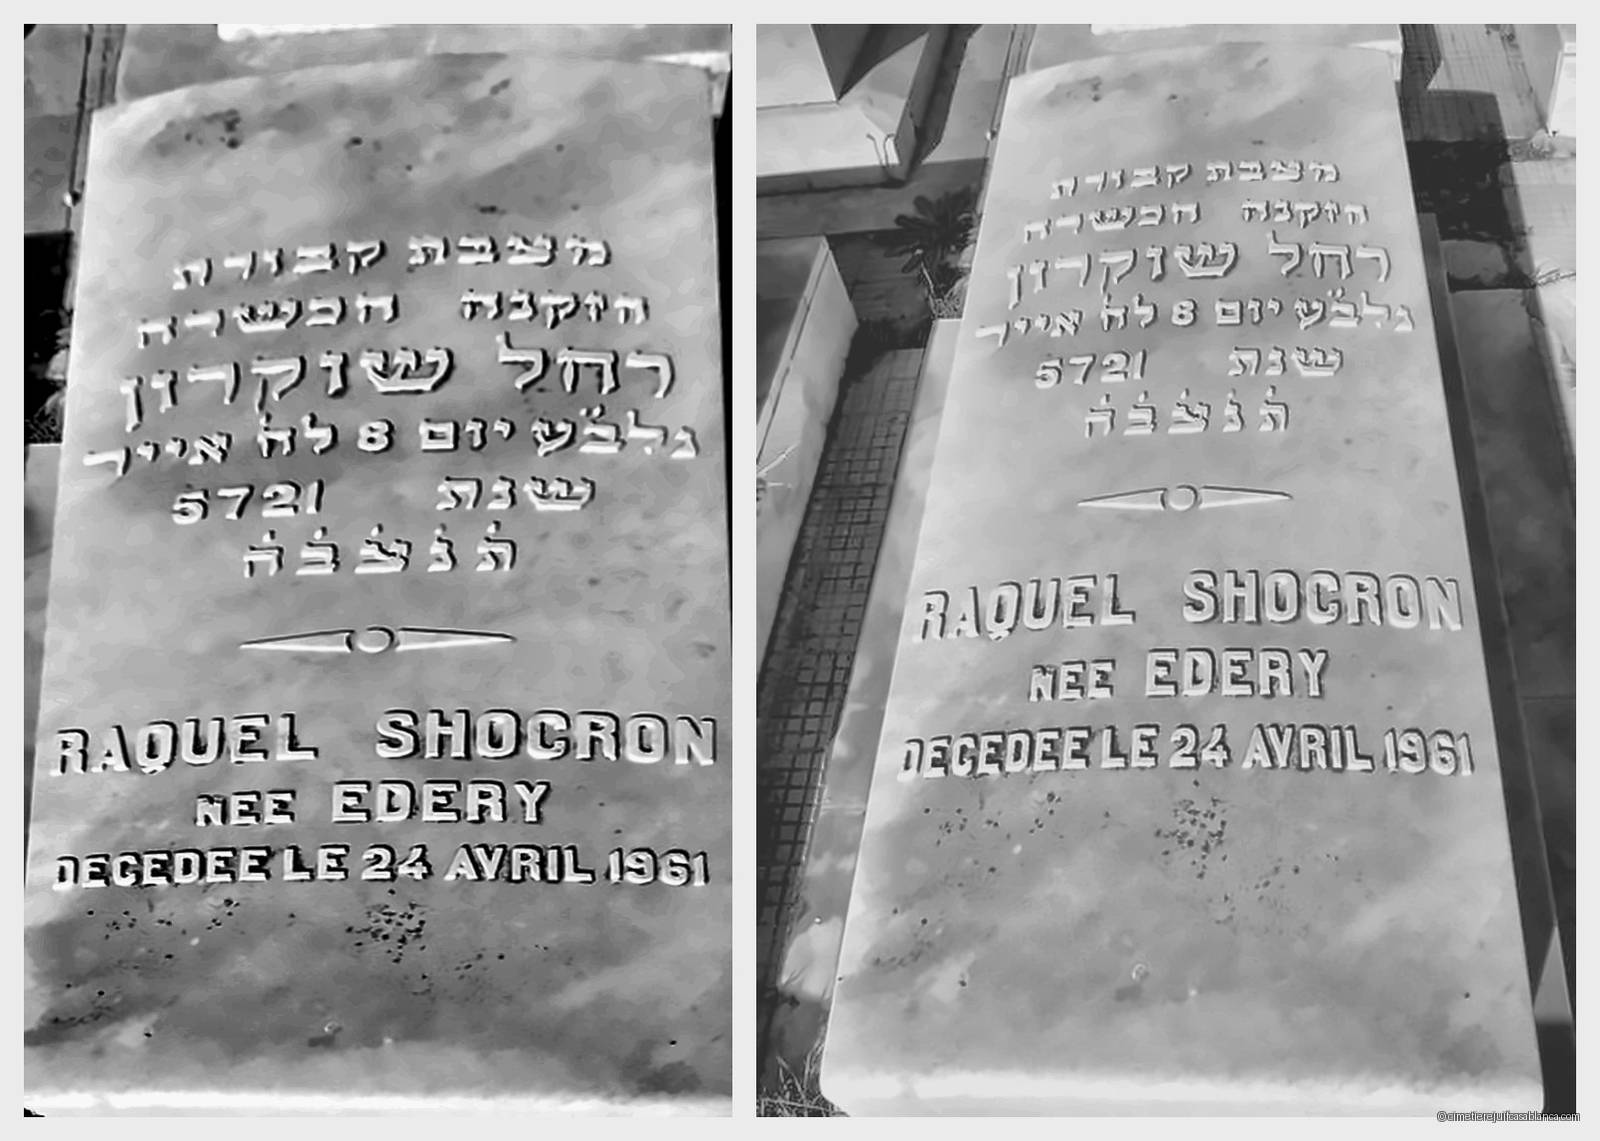 מצבת קבורת
הזקנה הכשרה
רחל שוקרון
נלב״ע יום 8 לח׳ אייר
שנת 5721
ת׳ נ׳ צ׳ ב׳ ה׳
RAQUEL SHOCRON
NEE EDERY
DECEDEE LE 24 AVRIL 1961
מצבת קבורת
הזקנה הכשרה
רחל שוקרון
נלב״ע יום 8 לח׳ אייר
שנת 5721
ת׳ נ׳ צ׳ ב׳ ה׳
RAQUEL SHOCRON
NEE EDERY
DECEDEE LE 24 AVRIL 1961
©cimetierejuifcasablanca.com